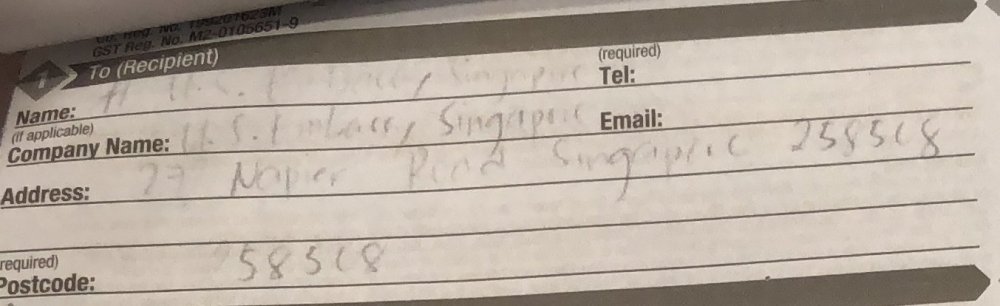 Co. Reg. No. 199201623M
GST Reg. No. M2-0105651-9
1 To (Recipient)
(required)
Name: U.S. Embassy, Singapore Tel:
(if applicable)
Company Name: U.S. Embassy, Singapore Email:
Address: 27 Napier Road Singapore 258518
required)
Postcode: 58518